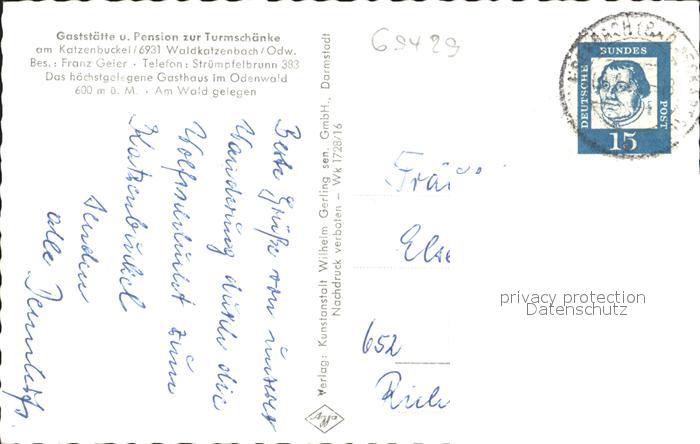 Gaststätte u. Pension zur Turmschänke
am Katzenbuckel/6931 Waldkatzenbach/Odw.
Bes.: Franz Geier · Telefon: Strümpfelbrunn 383
Das höchstgelegene Gasthaus im Odenwald
600 m ü. M. · Am Wald gelegen
69429
Beste Grüße von unserer
Wanderung durch die
Wolfschlucht zum
Katzenbuckel
senden
alle
Verlag: Kunstanstalt Wilhelm Gerling sen. GmbH., Darmstadt
Nachdruck verboten — Wk 1728/16
DEUTSCHE
BUNDES
POST
15
Fräu
Else
652
privacy protection
Datenschutz